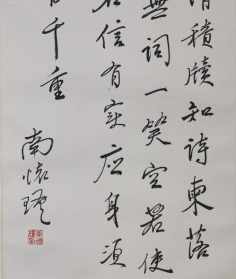 積牘知詩東落
無詞一笑空若使
信有定应身須
千重
南怀瑾